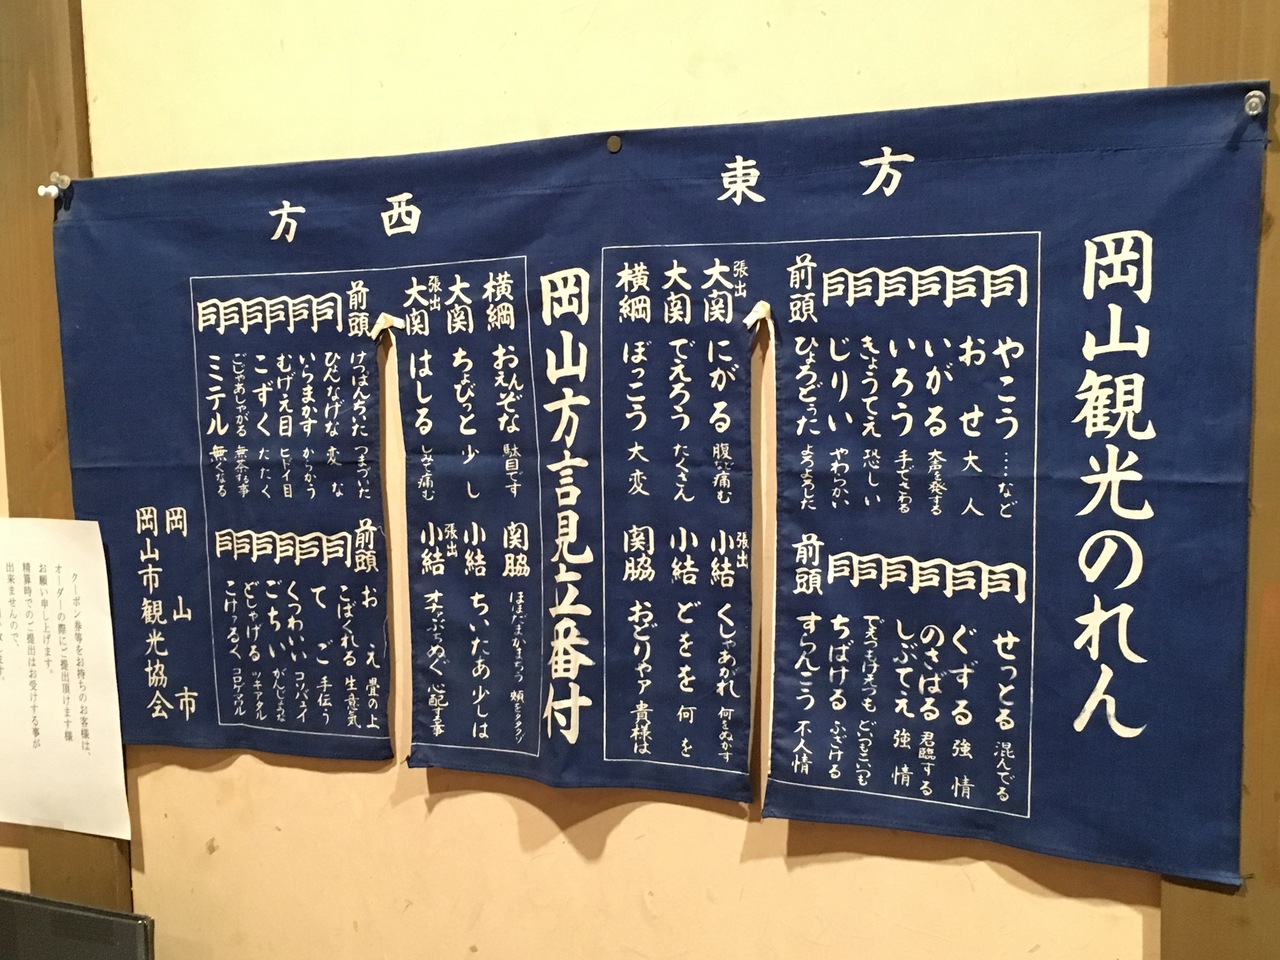 岡山観光のれん
東方
横綱 ぼっこう 大変
大関 でえろう たくさん
張出 大関 にがる 腹など痛む
前頭 ひょろどうた よろよろした
同 じりい やわらかい
同 きょうてえ 恐しい
同 いろう 手でさわる
同 いがる 大声を発する
同 おせ 大人
同 やこう ……など
関脇 おどりゃァ 貴様は
小結 どをを 何を
張出 小結 くしゃあがれ 何をぬかす
前頭 すらんこう 不人情
同 ちばける ふざける
同 でえつけそつも どいつもこいつも
同 しぶてえ 強情
同 のさばる 君臨する
同 ぐずる 強情
同 せっとる 混んでる
岡山方言見立番付
西方
横綱 おえんぞな 駄目です
大関 ちょびっと 少し
張出 大関 はしる しみて痛む
前頭 けつまんちいた つまづいた
同 ひんなげな 変な
同 いらまかす からかう
同 むげえ目 ヒドイ目
同 こずく たたく
同 ごじゃあしゃがる 無茶する事
同 ミテル 無くなる
関脇 ほほたまかちまう 頬をタタク
小結 ちいたあ 少しは
張出 小結 オチょぶちぬぐ 心配する事
前頭 おえ 畳の上
同 こばくれる 生意気
同 てご 手伝う
同 くつわいい コソバユイ
同 ごちい がんじょうだ
同 どしゃげる ツキアタル
同 こけぇるく コロゲアルク
岡山市
岡山市観光協会
クーポン券等をお持ちのお客様は、
オーダーの際にご提出頂けます様
お願い申し上げます。
精算時でのご提出はお受けする事が
出来ませんので、